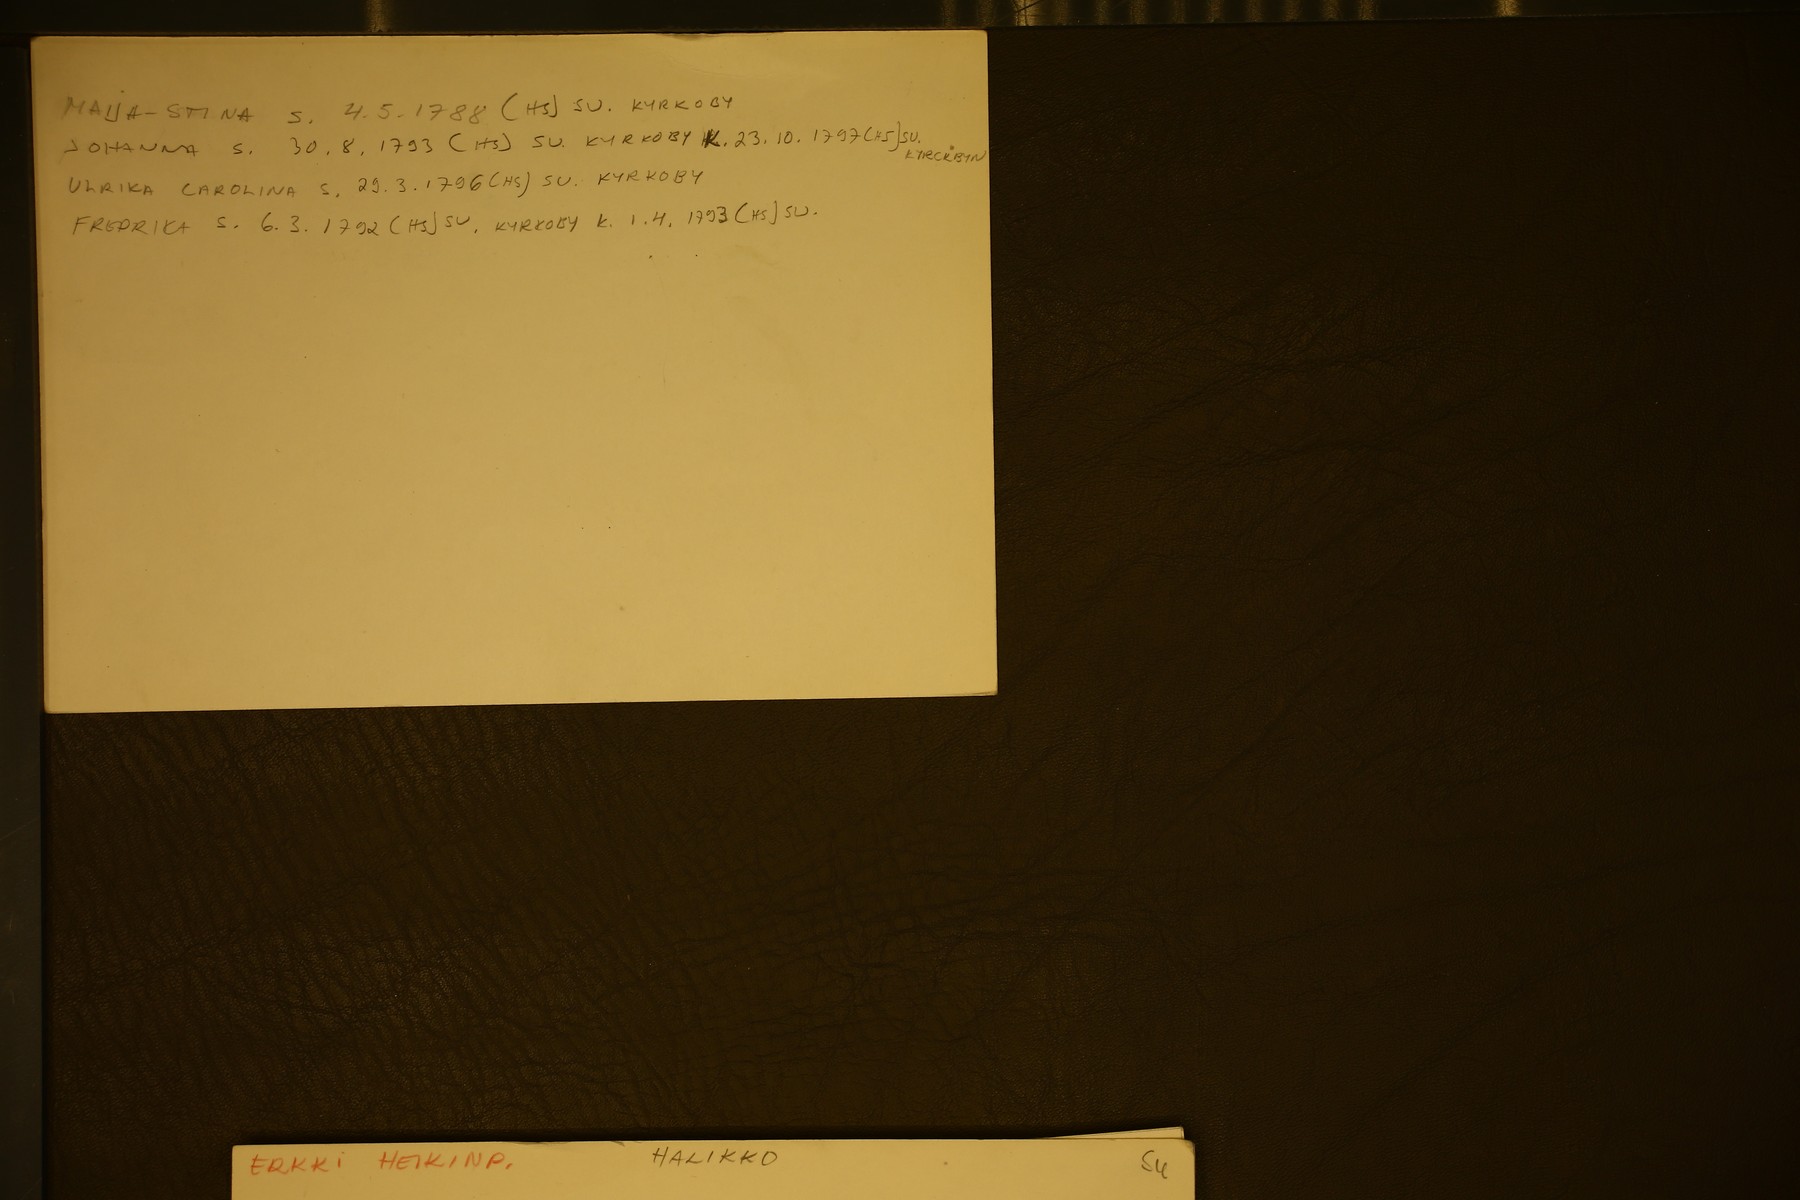 MAIJA-STINA S. 4.5.1788 (HS) SU. KYRKOBY
JOHANNA S. 30.8.1793 (HS) SU. KYRKOBY K. 23.10.1797 (HS) SU.
KYRCKBYN
ULRIKA CAROLINA S. 29.3.1796 (HS) SU. KYRKOBY
FREDRIKA S. 6.3.1792 (HS) SU. KYRKOBY K. 1.4.1793 (HS) SU.
ERKKI HEIKINP. HALIKKO SU